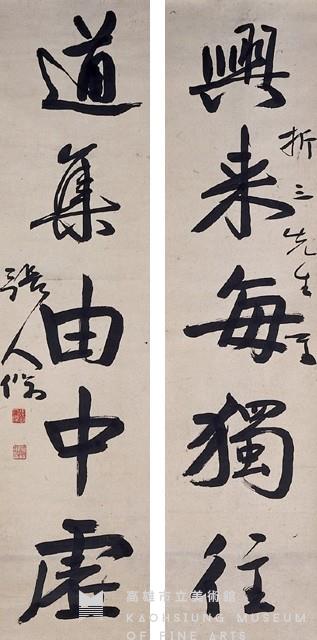 興來每獨往
折三先生正
道集由中虛
張人傑
高雄市立美術館
KAOHSIUNG MUSEUM
OF FINE ARTS